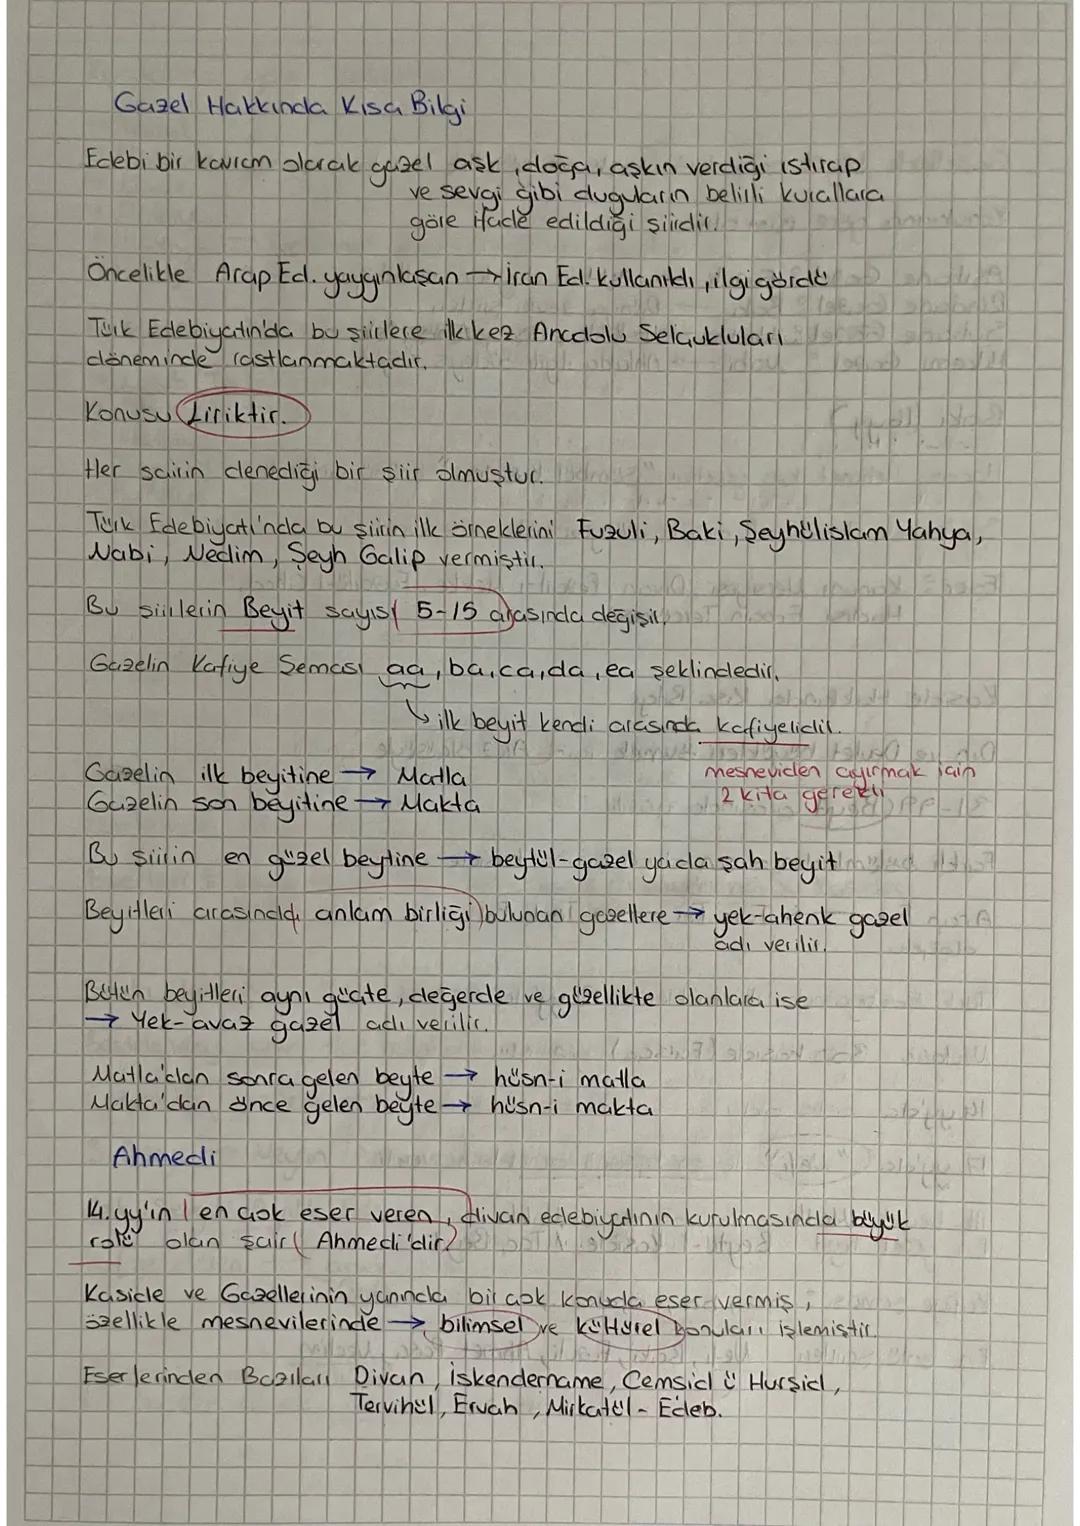 Gazel Hakkında Kısa Bilgi
Edebi bir kavram olarak gazel aşk, doğa, aşkın verdiği ıstırap
ve sevgi gibi duguların belirli kurallara
göre ifade edildiği şiirdir.
Öncelikle Arap Ed. yaygınlaşan → İran Ed. kullanıldı, ilgi gördü
Türk Edebiyatın'da bu şiirlere ilk kez Anadolu Selçukluları
döneminde rastlanmaktadır.
Konusu Liriktir.
Her şairin denediği bir şiir olmuştur.
Türk Edebiyatı'nda bu şiirin ilk örneklerini Fuzuli, Baki, Şeyhülislam Yahya,
Nabi, Nedim, Şeyh Galip vermiştir.
Bu şiirlerin Beyit sayısı 5-15 arasında değişir.
Gazelin Kafiye Şeması aa, ba, ca, da, ea şeklindedir.
↳ ilk beyit kendi arasında kafiyelidir.
mesneviden ayırmak için
2 kıta gerekli
Gazelin ilk beyitine → Matla
Gazelin son beyitine → Makta
Bu şiirin en güzel beytine → beytül-gazel ya da şah beyit
Beyitleri arasında anlam birliği bulunan gazellere → yek-ahenk gazel
adı verilir.
Bütün beyitleri aynı güçte, değerde ve güzellikte olanlara ise
→ Yek-avaz gazel adı verilir.
Matla'dan sonra gelen beyte → hüsn-i matla
Makta'dan önce gelen beyte → hüsn-i makta
Ahmedi
14.yy'ın en çok eser veren, divan edebiyatının kurulmasında büyük
rolü olan şair Ahmedi'dir.
Kaside ve Gazellerinin yanında bir çok konuda eser vermiş,
özellikle mesnevilerinde → bilimsel ve kültürel konuları işlemiştir.
Eserlerinden Bazıları Divan, İskendername, Cemşid ü Hurşid,
Tervihül, Ervah, Mirkatül - Edeb.